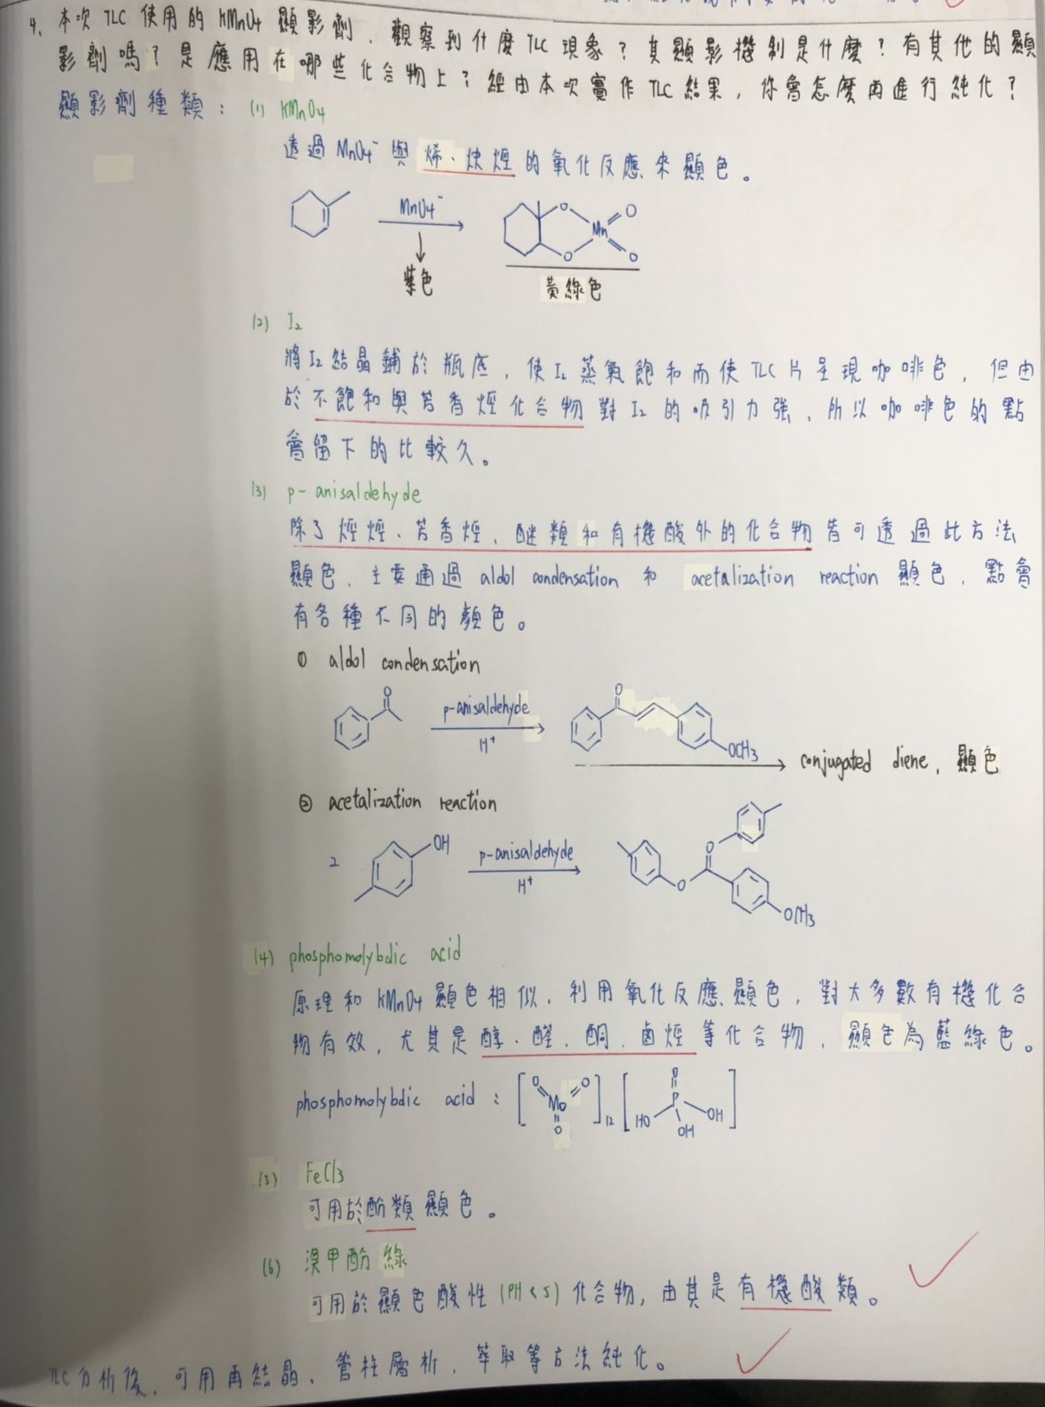 9. 本次 TLC 使用的 KMnO4 顯影劑，觀察到什麼 TLC 現象？其顯影機制是什麼？有其他的顯
影劑嗎？是應用在哪些化合物上？經由本次實作 TLC 結果，你會怎麼再進行純化？
顯影劑種類：(1) KMnO4
透過 MnO4⁻ 與烯、炔烴的氧化反應來顯色。
MnO4⁻
O
O
Mn
O
O
紫色
黃綠色
(2) I2
將 I2 結晶鋪於瓶底，使 I2 蒸氣飽和而使 TLC 片呈現咖啡色，但由
於不飽和與芳香烴化合物對 I2 的吸引力強，所以咖啡色的點
會留下的比較久。
(3) p-anisaldehyde
除了烴烴、芳香烴、醚類和有機酸外的化合物皆可透過此方法
顯色，主要通過 aldol condensation 和 acetalization reaction 顯色，點會
有各種不同的顏色。
① aldol condensation
O
p-anisaldehyde
H⁺
O
OCH3
conjugated diene，顯色
② acetalization reaction
2
OH
p-anisaldehyde
H⁺
O
O
OCH3
(4) phosphomolybdic acid
原理和 KMnO4 顯色相似，利用氧化反應顯色，對大多數有機化合
物有效，尤其是醇、醛、酮、鹵烴等化合物，顯色為藍綠色。
phosphomolybdic acid：
O
O
Mo
O
12
O
P
HO
OH
OH
(5) FeCl3
可用於酚類顯色。
(6) 溴甲酚綠
可用於顯色酸性 (PH < 5) 化合物，由其是有機酸類。
TLC 分析後，可用再結晶、管柱層析、萃取等方法純化。